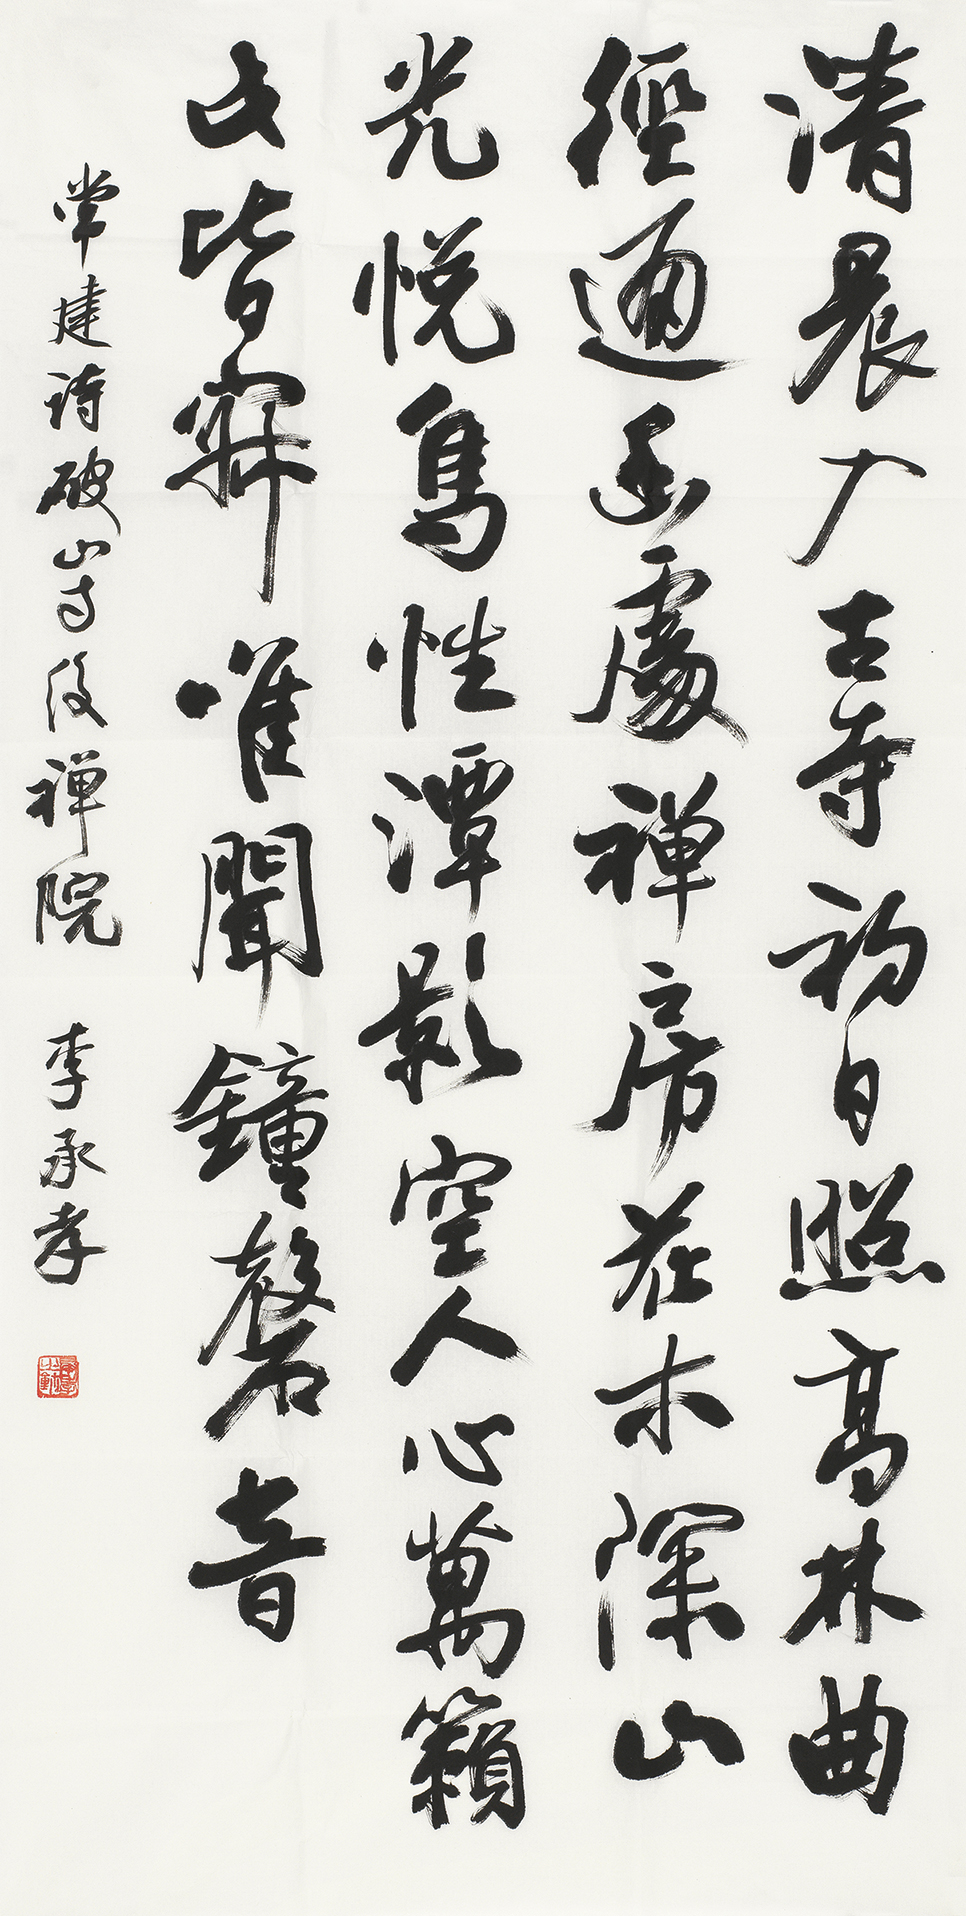 清晨入古寺初日照高林曲
徑通幽處禪房花木深山
光悅鳥性潭影空人心萬籟
此皆寂唯聞鐘磬音
常建詩破山寺後禪院 李承孝